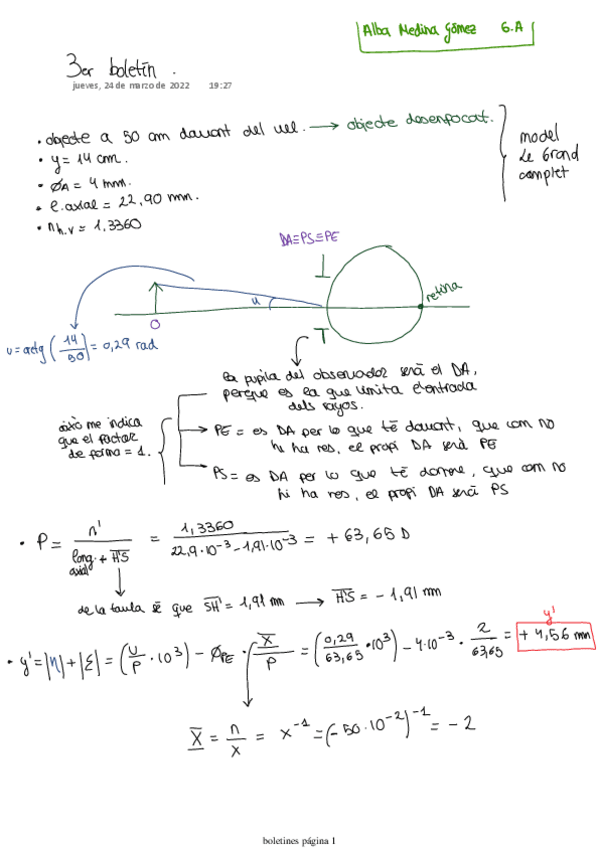 Alba Medina Gómez 6.A
3er boletín.
jueves, 24 de marzo de 2022 19:27
• objecte a 50 cm davant del ull. ⟶ objecte desenfocat.
• y = 14 cm.
• ØA = 4 mm.
• l.axial = 22,90 mm.
• nh.v = 1,3360
model
Le Grand
complet
DA≡PS≡PE
u
retina
O
u = actg (14/50) = 0,29 rad
la pupila del observador serà el DA,
perque es la que limita l'entrada
dels rayos.
això me indica
que el factor
de forma = 1.
PE = es DA per lo que té davant, que com no
hi ha res, el propi DA serà PE
PS = es DA per lo que té darrere, que com no
hi ha res, el propi DA serà PS
• P = n' / (long. axial + H'S) = 1,3360 / (22,9·10⁻³ − 1,91·10⁻³) = + 63,65 D
de la taula sé que SH' = 1,91 mm ⟶ H'S = − 1,91 mm
y'
• y' = |η| + |ξ| = (u/P · 10³) − ØPE · X/P = (0,29/63,65 · 10³) − 4·10⁻³ · 2/63,65 = + 4,56 mm
X = n/x = x⁻¹ = (− 50·10⁻²)⁻¹ = − 2
boletines página 1